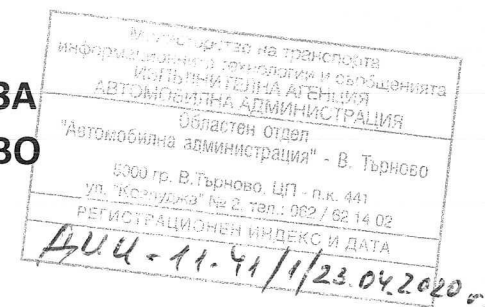 ЗА
ВО
Министерство на транспорта
информационните технологии и съобщенията
ИЗПЪЛНИТЕЛНА АГЕНЦИЯ
АВТОМОБИЛНА АДМИНИСТРАЦИЯ
Областен отдел
"Автомобилна администрация" - В. Търново
5000 гр. В.Търново, ЦП - п.к. 441
ул. "Козлуджа" № 2, тел.: 062 / 62 14 02
РЕГИСТРАЦИОНЕН ИНДЕКС И ДАТА
11-41/1/23.04.2020 г.